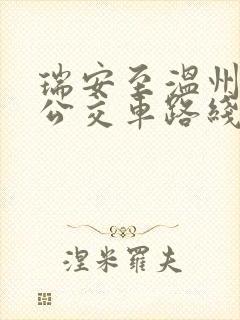 瑞安至温州
公交车路线
涅米罗夫